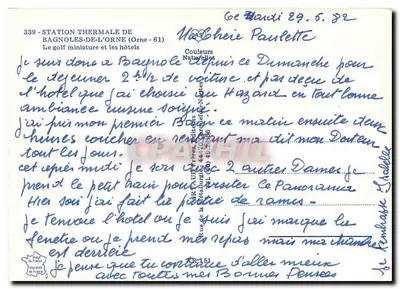 339 - STATION THERMALE DE
BAGNOLES-DE-L'ORNE (Orne - 61)
Le golf miniature et les hôtels
Couleurs
Naturelles
ce Mardi 29.6.82
Ma Chère Paulette
je suis donc a Bagnole depuis ce Dimanche pour
le dejeuner 2h 1/2 de voiture et pas deçu de
l'hotel que j'ai choisi au Hazard en tout bonne
ambiance cuisine soignée
j'ai pris mon premier Bain ce matin ensuite deux
heures coucher en rentrant ma dit mon Docteur
tout les jours.
cet après midi je sors avec 2 autres Dames je
prend le petit train pour visiter ce Panorama
Hier soir j'ai fait la partie de rames
je t'envoie l'hotel ou je suis j'ai marqué la
fenetre ou je prend mes repas mais ma chambre
est derrière
je pense que tu continue d'aller mieux
avec toutes mes Bonnes Pensées
je t'embrasse